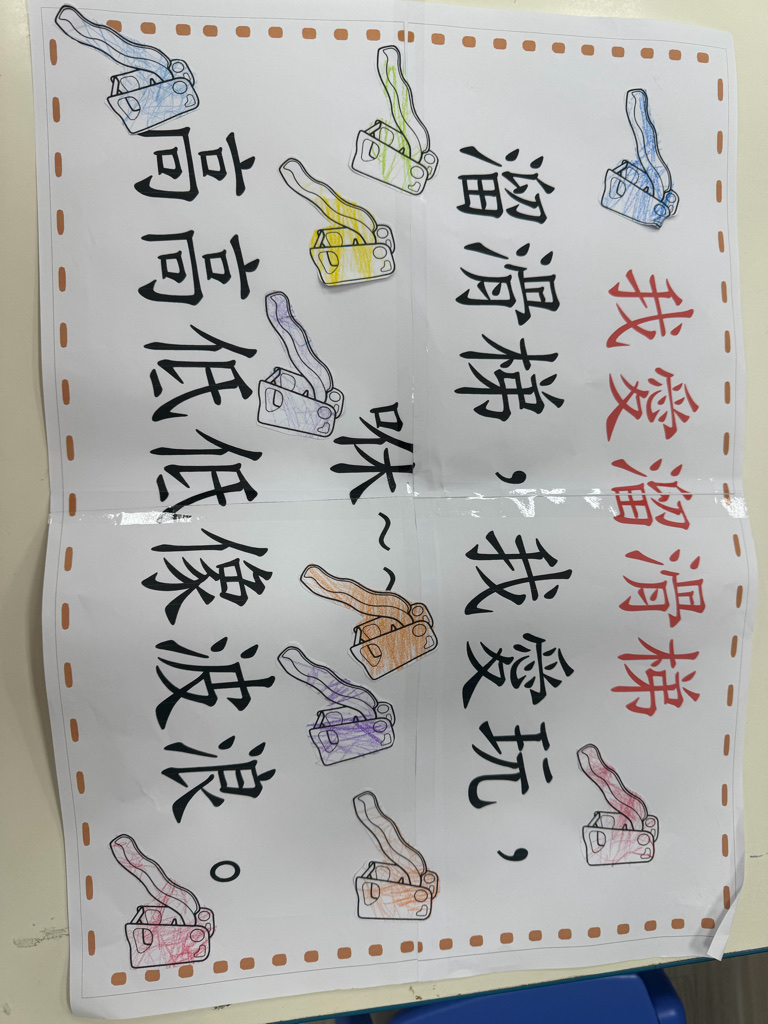 我愛溜滑梯
溜滑梯，我愛玩，
咻~~
高高低低像波浪。